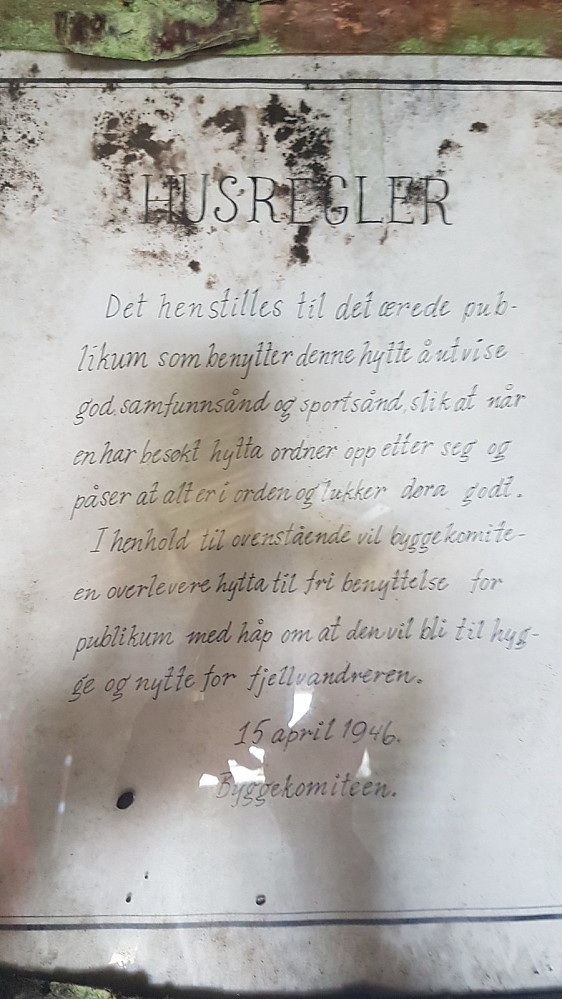 HUSREGLER
Det henstilles til det ærede pub-
likum som benytter denne hytte å utvise
god samfunnsånd og sportsånd, slik at når
en har besøkt hytta ordner opp etter seg og
påser at alt er i orden og lukker døra godt.
I henhold til ovenstående vil byggekomite-
en overlevere hytta til fri benyttelse for
publikum med håp om at den vil bli til hyg-
ge og nytte for fjellvandreren.
15 april 1946.
Byggekomiteen.